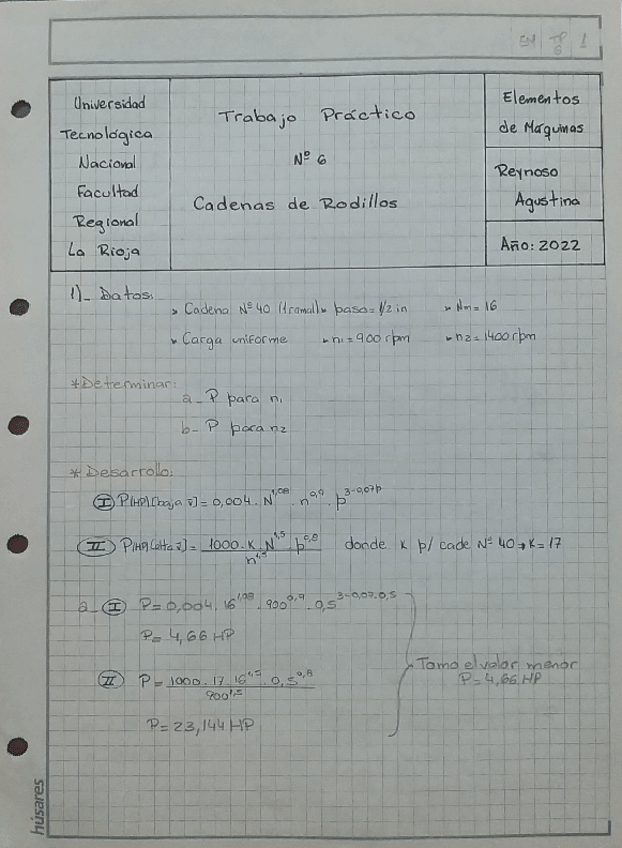 EM TP 6 1
Universidad
Tecnológica
Nacional
Facultad
Regional
La Rioja
Trabajo Práctico
Nº 6
Cadenas de Rodillos
Elementos
de Máquinas
Reynoso
Agustina
Año: 2022
1)_ Datos:
> Cadena Nº 40 (1 ramal) > paso = 1/2 in > Nm = 16
> Carga uniforme > n1 = 900 rpm > n2 = 1400 rpm
* Determinar:
a_ P para n1
b_ P para n2
* Desarrollo:
I P(HP)[baja v] = 0,004 . N^1,08 . n^0,9 . p^3-0,07p
II P(HP)[alta v] = 1000 . K . N^1,5 . p^0,8 / n^1,5 donde K p/ cade Nº 40 → K = 17
a_ I P = 0,004 . 16^1,08 . 900^0,9 . 0,5^3-0,07.0,5
P = 4,66 HP
II P = 1000 . 17 . 16^1,5 . 0,5^0,8 / 900^1,5
P = 23,144 HP
Tomo el valor menor
P = 4,66 HP
húsares